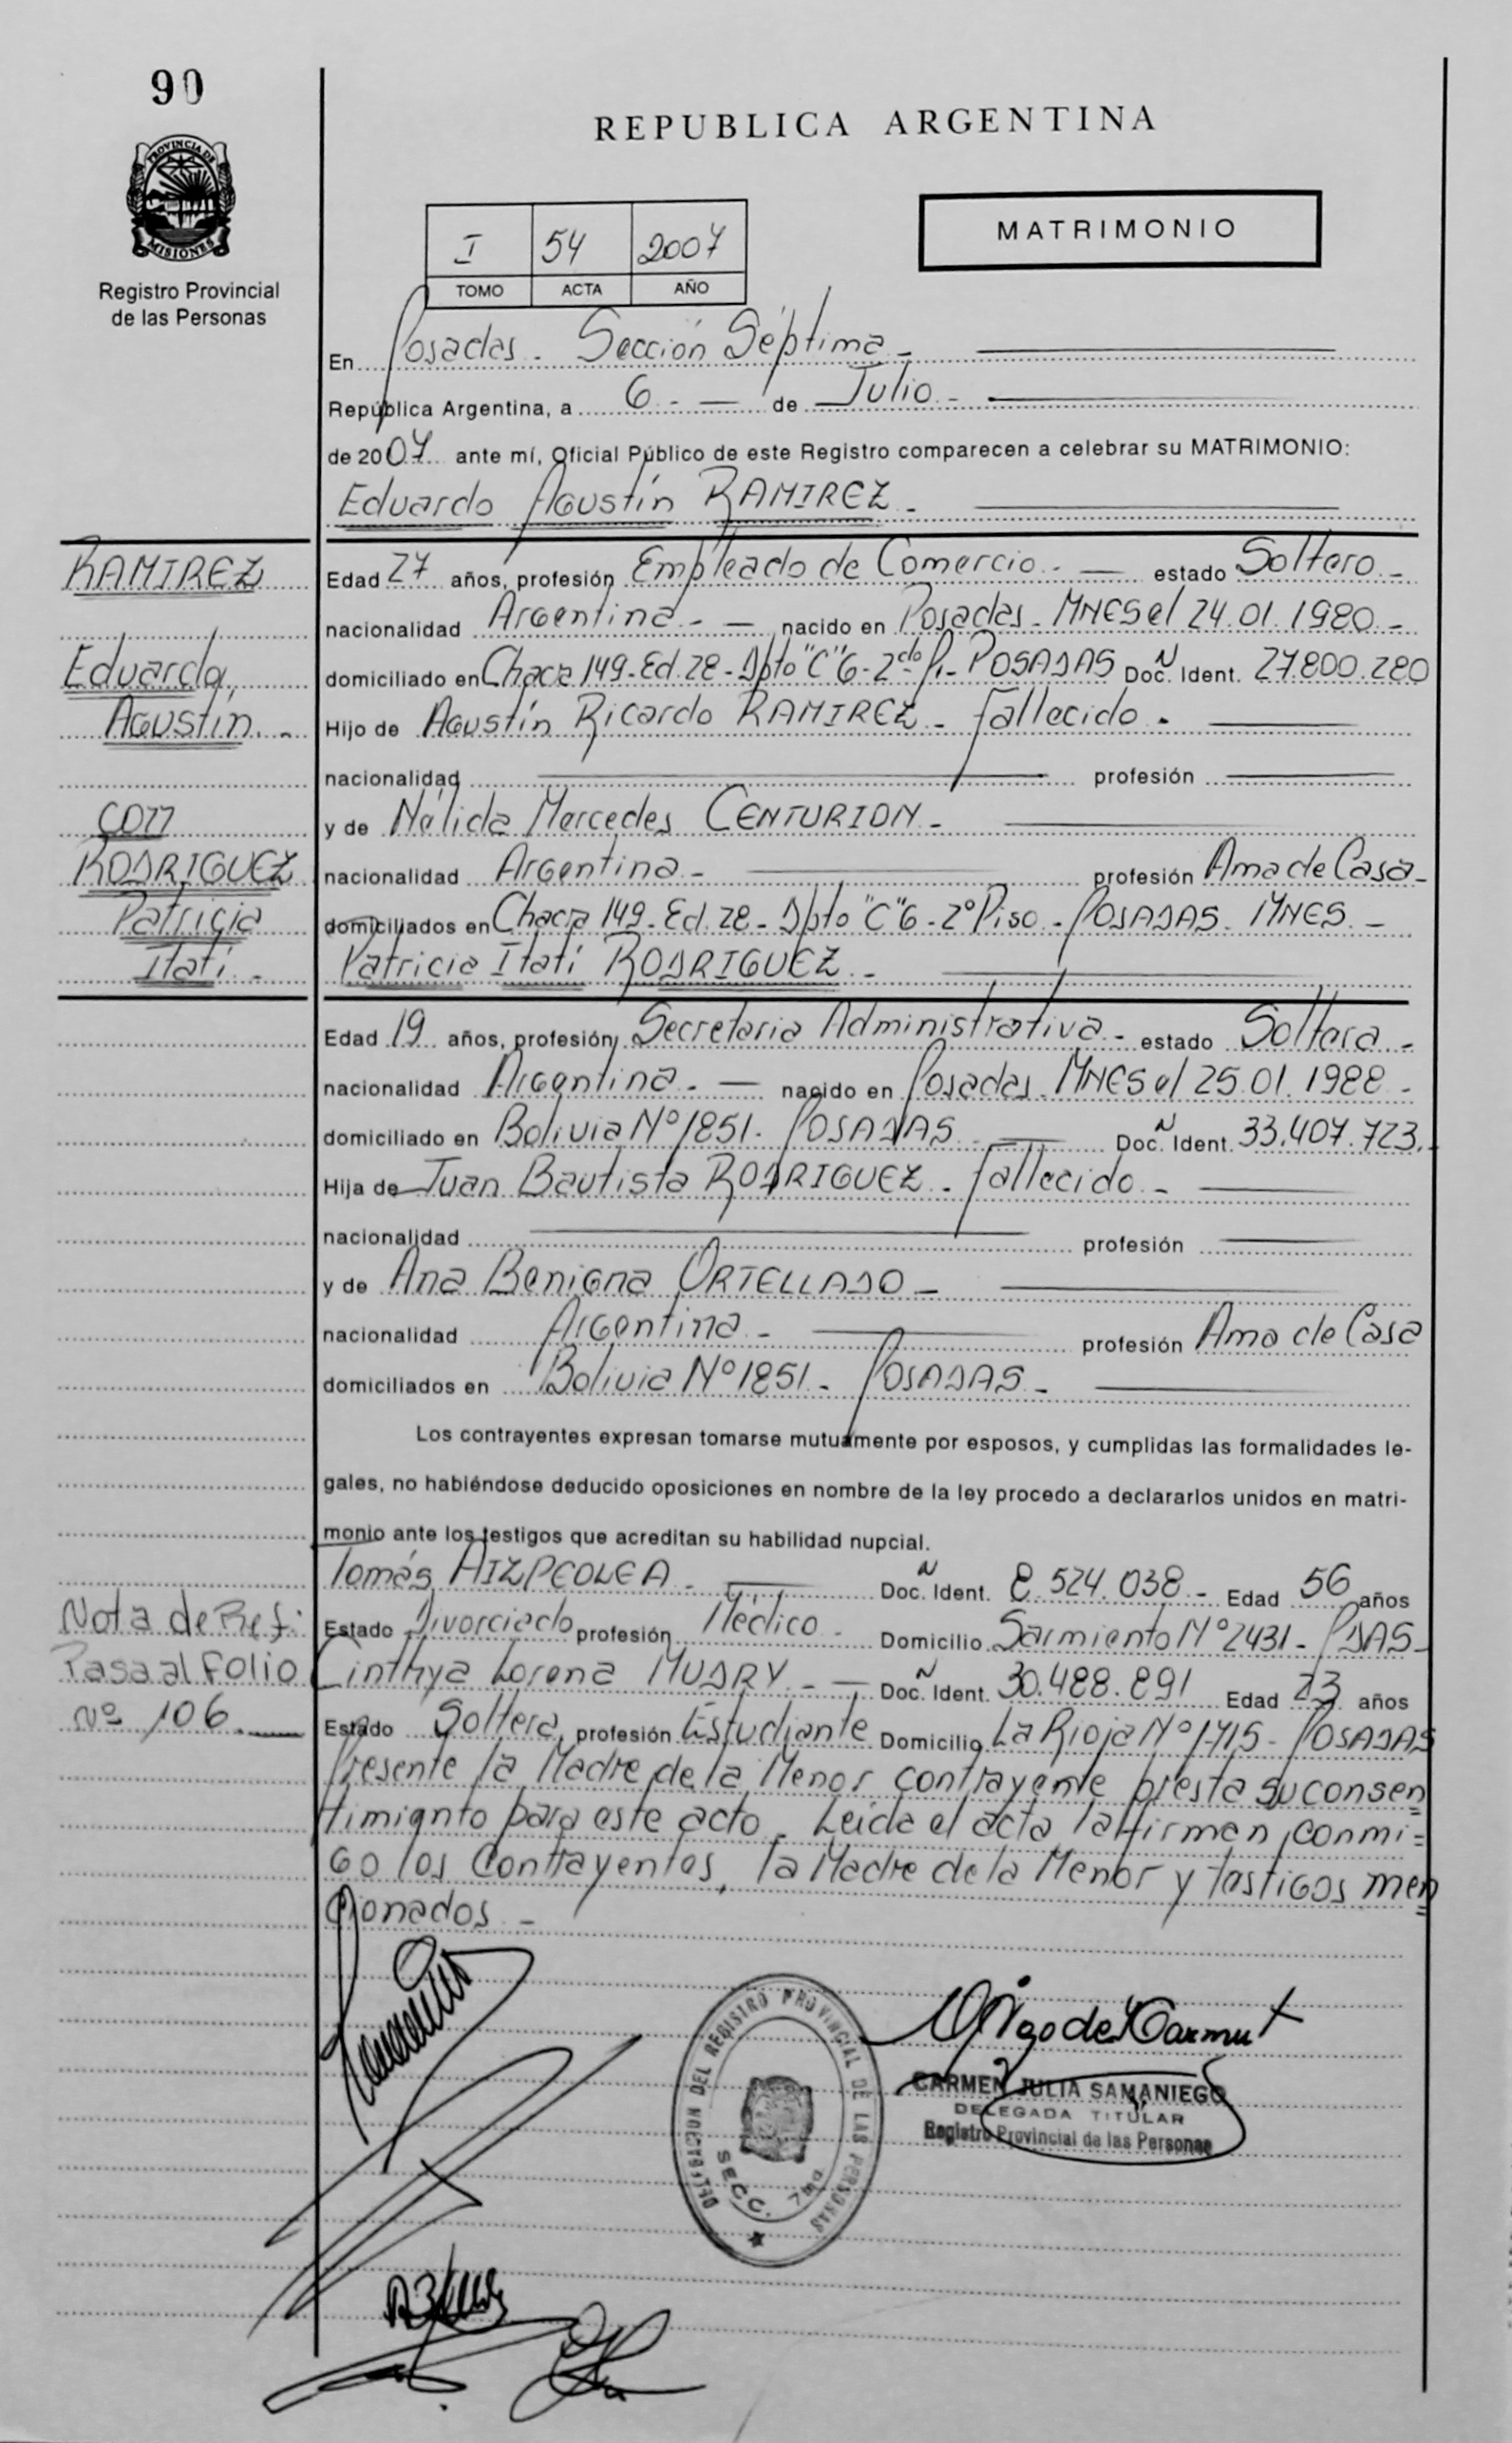 90
REPUBLICA ARGENTINA
PROVINCIA DE
MISIONES
Registro Provincial
de las Personas
MATRIMONIO
I 54 2007
TOMO ACTA AÑO
En Posadas - Sección Séptima -
República Argentina, a 6 - de Julio -
de 2007 ante mí, Oficial Público de este Registro comparecen a celebrar su MATRIMONIO:
Eduardo Agustín RAMIREZ -
RAMIREZ
Eduardo,
Agustín. -
con
RODRIGUEZ
Patricia
Itatí -
Edad 27 años, profesión Empleado de Comercio - estado Soltero -
nacionalidad Argentina - nacido en Posadas - MNES el 24.01.1980 -
domiciliado en Chacra 149 - Ed. 28 - Dpto "C" 6 - 2do P. - POSADAS Doc. N Ident. 27.800.280
Hijo de Agustín Ricardo RAMIREZ - fallecido -
nacionalidad profesión
y de Nélida Mercedes CENTURION -
nacionalidad Argentina - profesión Ama de Casa -
domiciliados en Chacra 149 - Ed. 28 - Dpto "C" 6 - 2° Piso - POSADAS - MNES -
Patricia Itatí RODRIGUEZ -
Edad 19 años, profesión Secretaria Administrativa - estado Soltera -
nacionalidad Argentina - nacido en Posadas - MNES el 25.01.1988 -
domiciliado en Bolivia N° 1851 - POSADAS Doc. N Ident. 33.407.723.
Hija de Juan Bautista RODRIGUEZ - fallecido -
nacionalidad profesión
y de Ana Benigna ORTELLADO -
nacionalidad Argentina - profesión Ama de Casa
domiciliados en Bolivia N° 1851 - POSADAS -
Los contrayentes expresan tomarse mutuamente por esposos, y cumplidas las formalidades le-
gales, no habiéndose deducido oposiciones en nombre de la ley procedo a declararlos unidos en matri-
monio ante los testigos que acreditan su habilidad nupcial.
Tomás AIZPEOLEA - Doc. N Ident. 8.524.038 - Edad 56 años
Estado Divorciado profesión Médico - Domicilio Sarmiento N° 2431 - PDAS -
Cinthya Lorena MUDRY - Doc. N Ident. 30.488.891 Edad 23 años
Estado Soltera, profesión Estudiante Domicilio La Rioja N° 1715 - POSADAS
Nota de Ref:
Pasa al Folio
Nº 106.
Presente la Madre de la Menor contrayente presta su consen
timiento para este acto - Leída el acta la firman conmi=
go los Contrayentes, la Madre de la Menor y testigos men
cionados -
DELEGACION DEL REGISTRO PROVINCIAL DE LAS PERSONAS
SECC. 7ma
CARMEN JULIA SAMANIEGO
DELEGADA TITULAR
Registro Provincial de las Personas